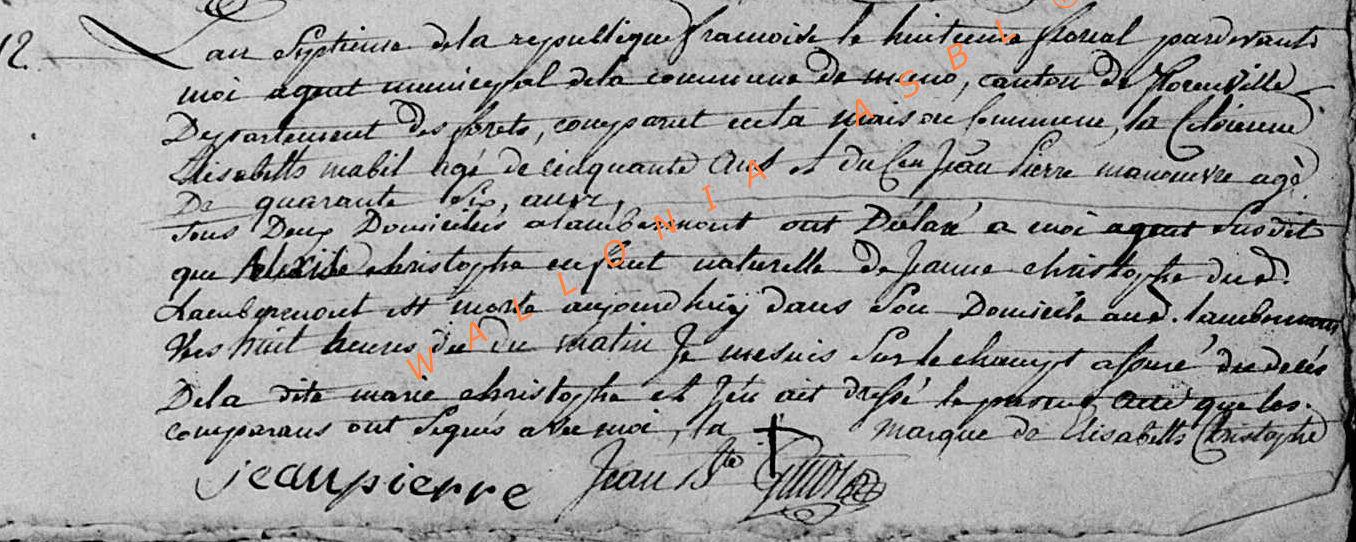 12. L'an Septieme de la republique francoise le huitieme floreal pardevant
moi agent municipal de la commune de muno, canton de florenville
Departement des forets, comparut en la maison Commune, la Citoienne
Elisabetts mabil agé de cinquante ans et du Cen Jean Pierre manouvre agé
De quarante Six, ans,
tous Deux Domiciliés a lambermont ont Déclaré a moi agent Susdit
que christophe enfant naturelle de Jeanne christophe du d.
Lambermont est morte aujourdhuy dans Son Domicile aud. lambermont
Vers huit heures du du matin Je me suis Sur le champt assuré du decés
De la dite marie christophe et J'en ait dressé le present acte que les
comparans ont Signés avec moi, la marque de Elisabetts Christophe
jeanpierre Jean Bte
WALLONIA ASBL ©